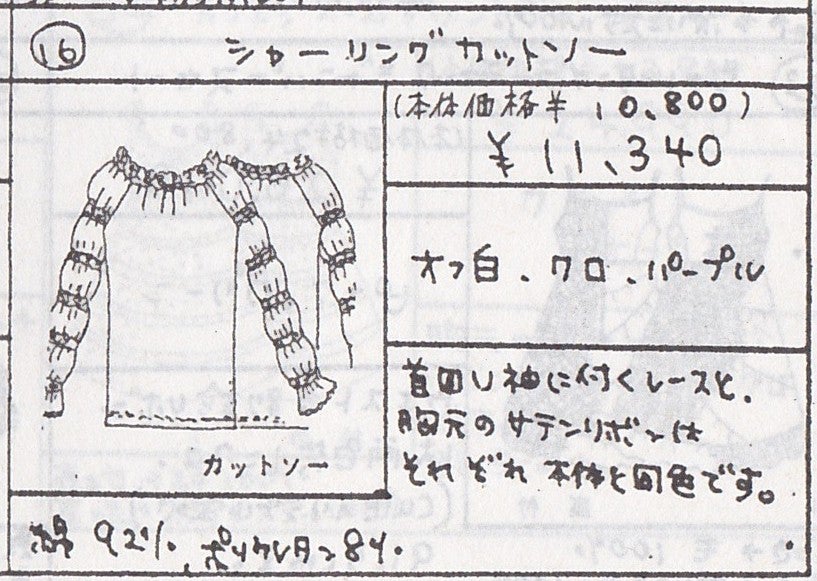 ⑯ シャーリングカットソー
(本体価格¥10,800)
¥11,340
オフ白、クロ、パープル
首回り袖に付くレースと、
胸元のサテンリボンは
それぞれ本体と同色です。
カットソー
綿92% ポリウレタン8%